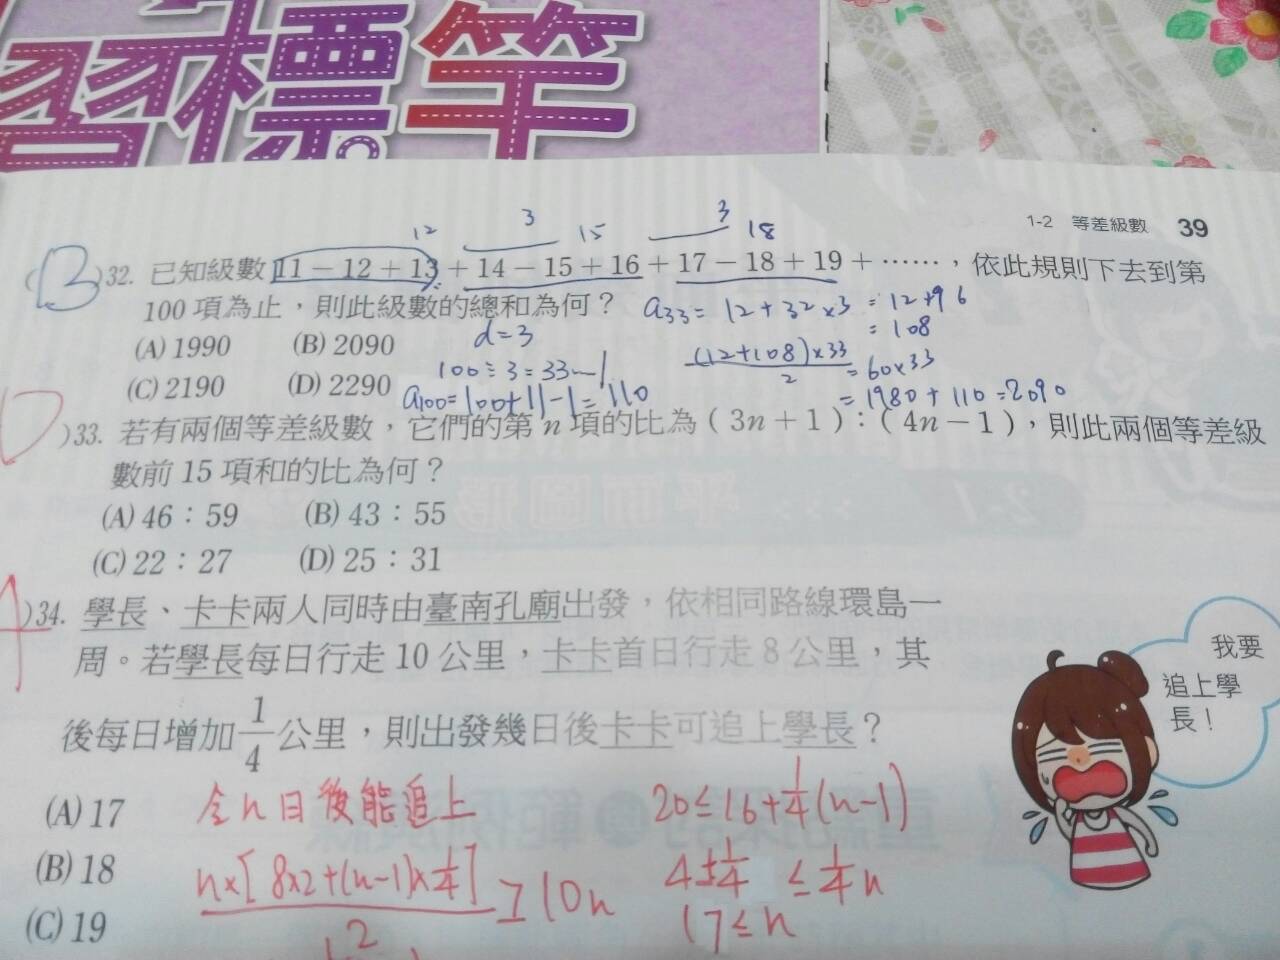 習標竿
1-2 等差級數 39
12 3 15 3 18
(B)32. 已知級數 11－12＋13＋14－15＋16＋17－18＋19＋……，依此規則下去到第
100 項為止，則此級數的總和為何？
a33= 12+32×3 = 12+96
= 108
(A) 1990 (B) 2090
d=3
(12+108)×33
2
= 60×33
(C) 2190 (D) 2290
100÷3=33…1
a100=100+11-1=110
= 1980+110=2090
D)33. 若有兩個等差級數，它們的第 n 項的比為（3n＋1）：（4n－1），則此兩個等差級
數前 15 項和的比為何？
(A) 46：59 (B) 43：55
(C) 22：27 (D) 25：31
A)34. 學長、卡卡兩人同時由臺南孔廟出發，依相同路線環島一
周。若學長每日行走 10 公里，卡卡首日行走 8 公里，其
後每日增加 1/4 公里，則出發幾日後卡卡可追上學長？
(A) 17
(B) 18
(C) 19
令n日後能追上
n×[8×2+(n-1)×1/4]
2
≥10n
20≤16+1/4(n-1)
4+1/4 ≤ 1/4n
17≤n
我要
追上學
長！